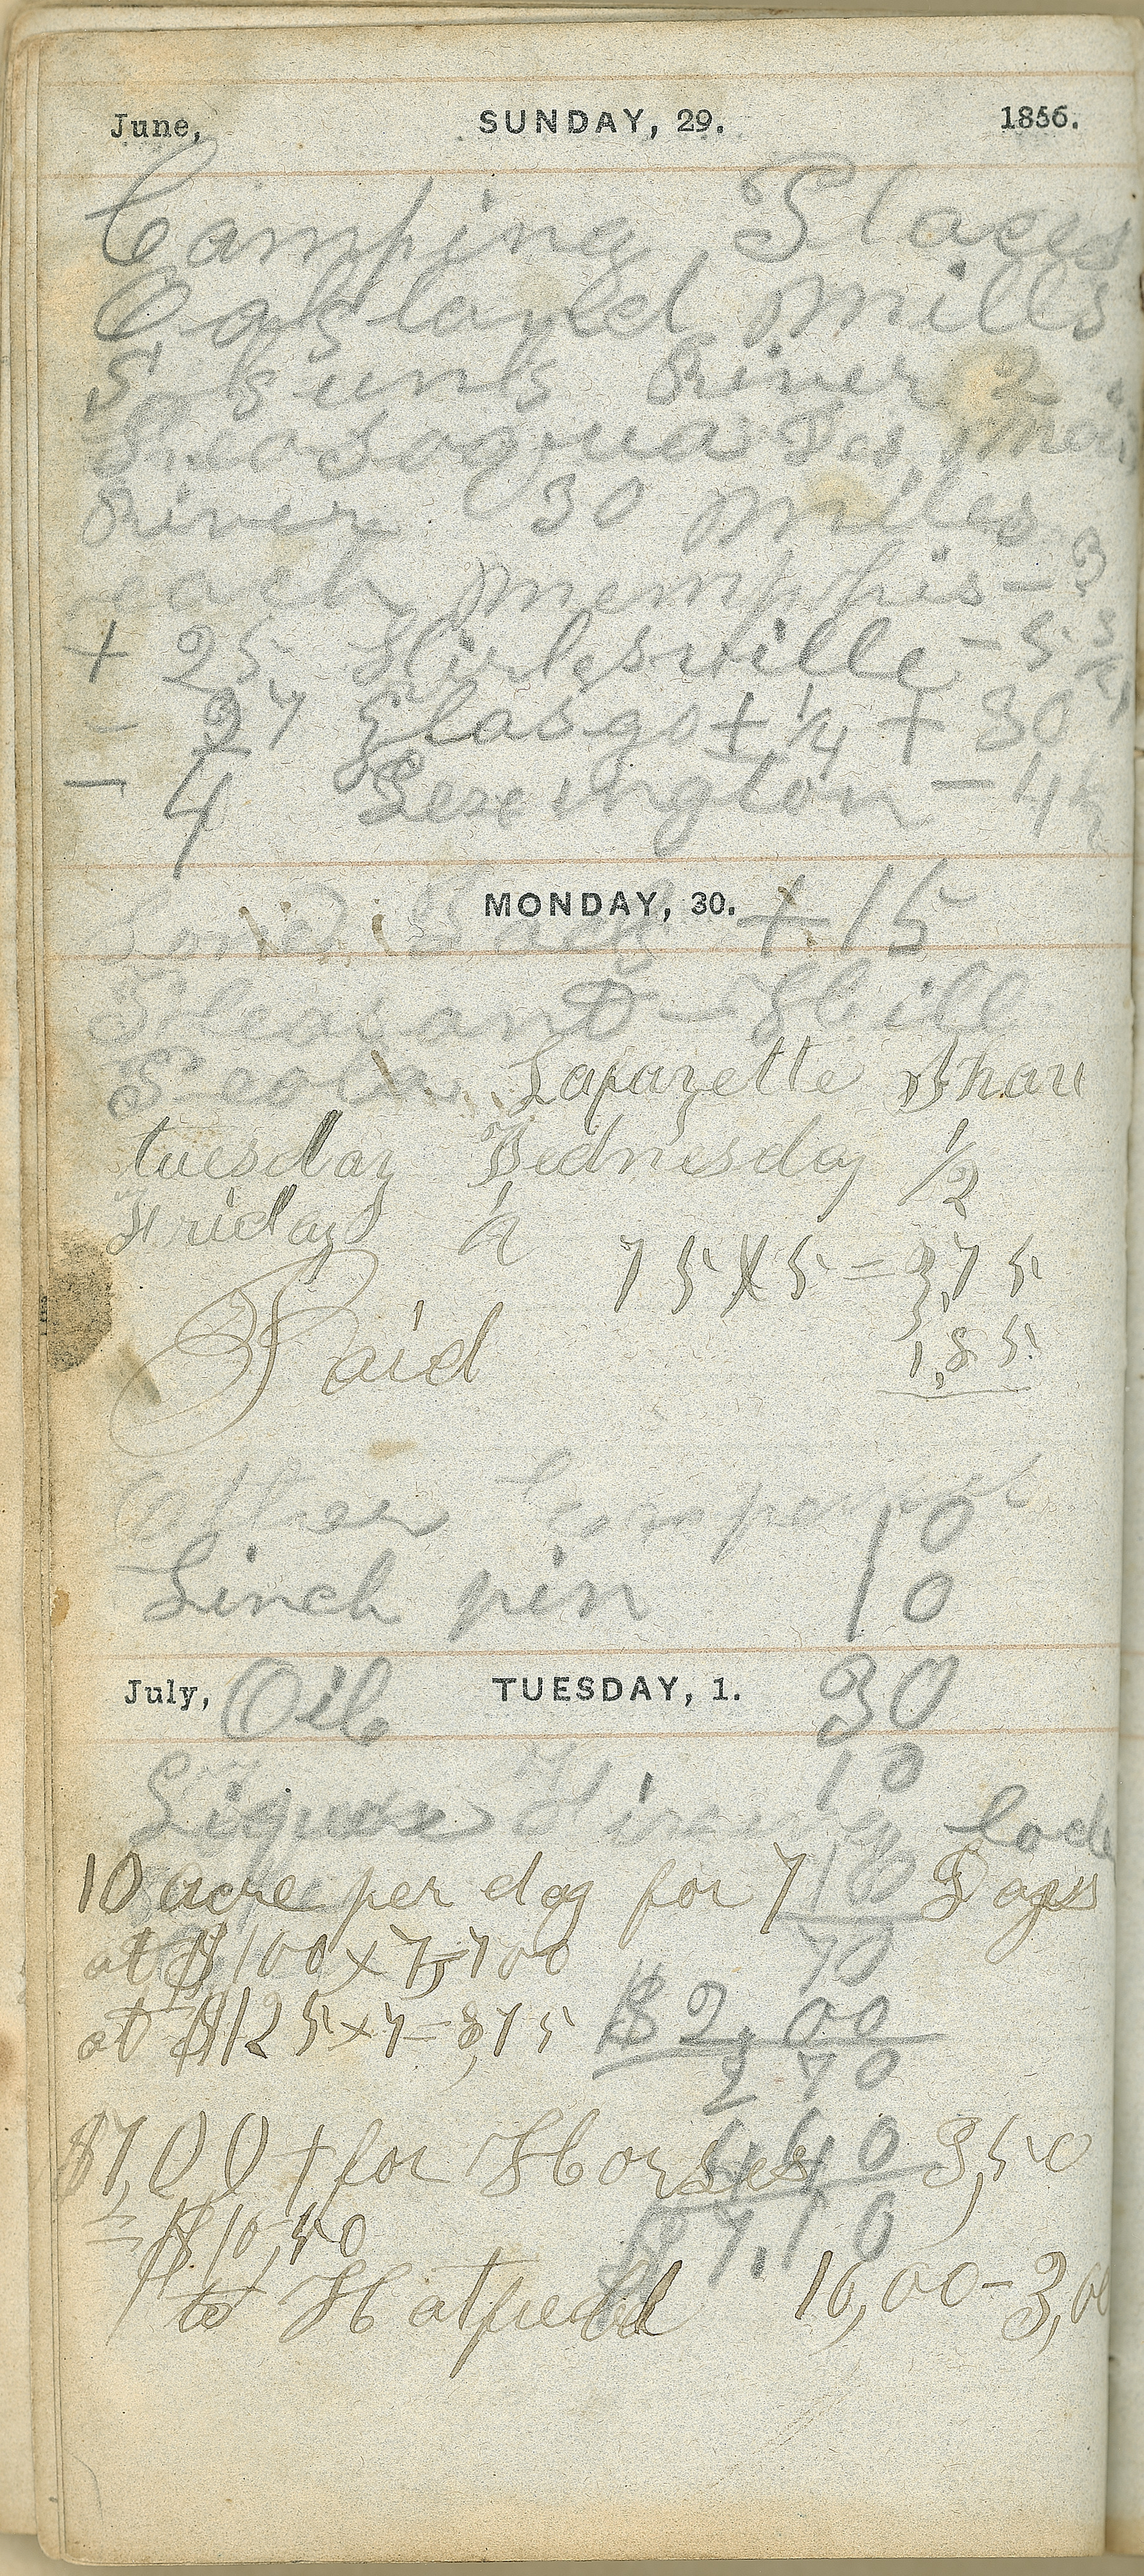 June, SUNDAY, 29. 1856.
Camping Places
Oakland mills
Skunk River 2
Keosoqua Des moi
River 30 miles
each memphis - 3
+ 25 Kirksville - 5
- 27 Glasgo + 1/4 + 30
- 4 Lexington - 4
MONDAY, 30.
Lone Jack + 15
Pleasant - Hill
Lafayette Shau
tuesday Wednesday 1/2
Friday 1/2
75 X 5 = 3,75
Paid 1,85
10
Linch pin 10
July, TUESDAY, 1.
Oil 30
10
Lock
10 acre per day for 7 Days
70
at $100 x 7 = 700
at $125 x 7 = 8,75 $2,00
2 70
4,40
$7,00 + for Horses 3,50
= $10,50 $7,10
to Hatfield 10,00 - 3,00